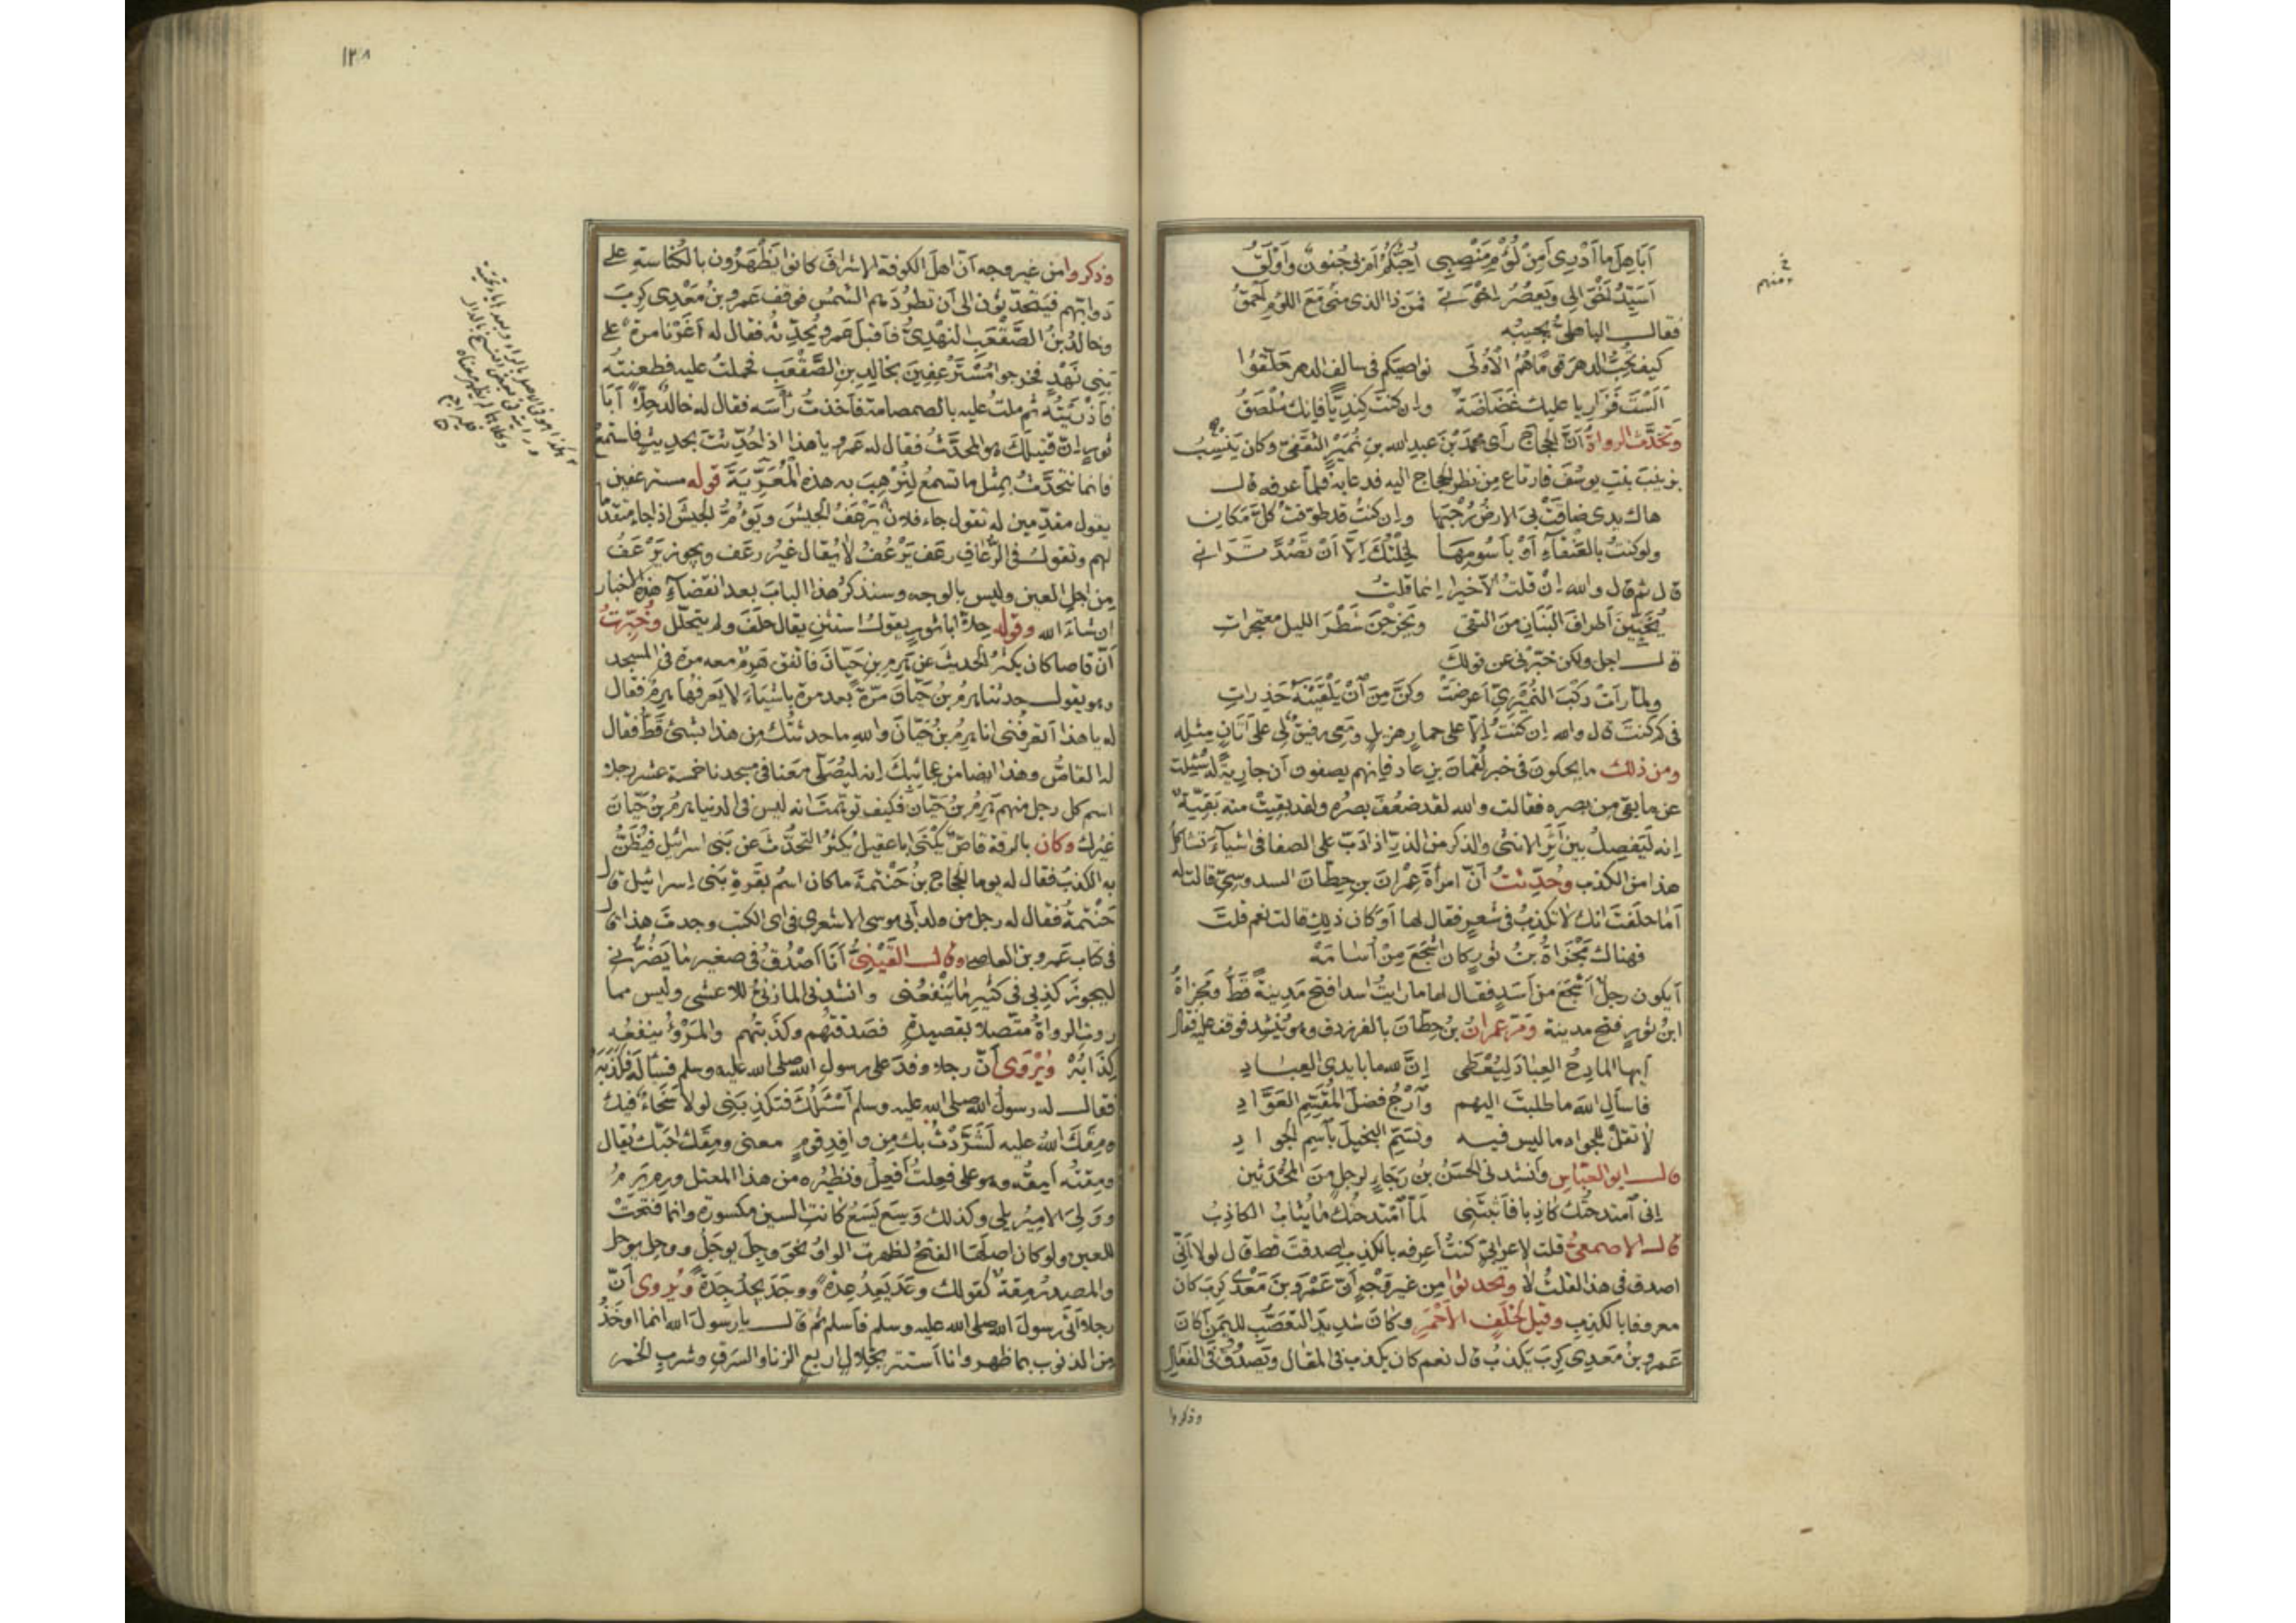 أباهل ما أدري أمن لؤم منصبي أحبكم أم بي جنون وأولق
أسيد أخوالي ويعصر إخوتي فمن ذا الذي مني مع اللؤم أحمق
فقال الباهلي يجيبه
كيف يحب الدهر قوما هم الأولى نواصيكم في سالف الدهر حلقوا
ألست فزاريا عليك غضاضة وإن كنت كنديا فإنك ملصق
وتحدث الرواة أن الحجاج رأى محمد بن عبد الله بن نمير الثقفي وكان ينسب
بزينب بنت يوسف فارتاع من نظر الحجاج إليه فدعا به فلما عرفه قال
هاك يدي ضاقت بي الأرض رحبها وإن كنت قد طوفت كل مكان
ولو كنت بالعنقاء أو بأسومها لخلتك إلا أن تصد تراني
قال ثم قال والله إن قلت إلا خيرا إنما قلت
يخبين أطراف البنان من التقى ويخرجن شطر الليل معتجرات
قال أجل ولكن خبرني عن قولك
ولما رأت ركب النميري أعرضت وكن من أن يلقينه حذرات
في كم كنت قال والله إن كنت إلا على حمار هزيل ومعي رفيق لي على أتان مثله
ومن ذلك ما يحكون في خبر لقمان بن عاد فإنهم يصفون أن جارية له سئلت
عن ما بقي من بصره فقالت والله لقد ضعف بصره ولقد بقيت منه بقية
إنه ليفصل بين أثر الأنثى والذكر من الذر إذا دب على الصفا في أشياء تشاكل
هذا من الكذب وحدثت أن امرأة عمران بن حطان السدوسي قالت له
أما حلفت أنك لا تكذب في شعر فقال لها أو كان ذلك قالت نعم قلت
فهناك مجزأة بن ثور كان أشجع من أسامه
أيكون رجل أشجع من أسد فقال لها ما رأيت أسدا فتح مدينة قط ومجزأة
ابن ثور فتح مدينة ومر عمران بن حطان بالفرزدق وهو ينشد فوقف عليه فقال
أيها المادح العباد ليعطى إن لله ما بأيدي العباد
فاسأل الله ما طلبت إليهم وارج فضل المقسم العواد
لا تقل للجواد ما ليس فيه وتسم البخيل باسم الجواد
قال أبو العباس وأنشدني الحسن بن رجاء لرجل من المحدثين
إني امتدحتك كاذبا فأثبتني لما امتدحتك ما يثاب الكاذب
قال الأصمعي قلت لأعرابي كنت أعرفه بالكذب أصدقت قط قال لولا أني
أصدق في هذا لقلت لا وتحدثوا من غير وجه أن عمرو بن معدي كرب كان
معروفا بالكذب وقيل لخلف الأحمر وكان شديد التعصب لليمن أكان
عمرو بن معدي كرب يكذب قال نعم كان يكذب في المقال ويصدق في الفعال
وذكروا
١٢٨
وذكروا من غير وجه أن أهل الكوفة الأشراف كانوا يظهرون بالكناسة على
دوابهم فيتحدثون إلى أن تطردهم الشمس فوقف عمرو بن معدي كرب
وخالد بن الصقعب النهدي فأقبل عمرو يحدثه فقال له أغرنا مرة على
بني نهد فخرجوا مسترعفين بخالد بن الصقعب فحملت عليه فطعنته
فأذريته ثم ملت عليه بالصمصامة فأخذت رأسه فقال له خالد حلا أبا
ثور إن قتيلك هو المحدث فقال له عمرو يا هذا إذا حدثت بحديث فاستمع
فإنما نتحدث بمثل ما تسمع لنرهب به هذه المعدية قوله مسترعفين
يقول مقدمين له تقول جاء فلان يرعف الجيش ويؤم الجيش إذا جاء متقدما
لهم وتقول في الرعاف رعف يرعف لا يقال غير رعف ويجوز يرعف
من أجل العين وليس بالوجه وسنذكر هذا الباب بعد انقضاء هذه الأخبار
إن شاء الله وقوله حلا أبا ثور يقول استثن يقال حلف ولم يتحلل وخبرت
أن قاصا كان يكثر الحديث عن هرم بن حيان فاتفق هرم معه مرة في المسجد
وهو يقول حدثنا هرم بن حيان مرة بعد مرة بأشياء لا يعرفها هرم فقال
له يا هذا أتعرفني أنا هرم بن حيان والله ما حدثتك من هذا بشيء قط فقال
له القاص وهذا أيضا من عجائبك إنه ليصلي معنا في مسجدنا خمسة عشر رجلا
اسم كل رجل منهم هرم بن حيان فكيف توهمت أنه ليس في الدنيا هرم بن حيان
غيرك وكان بالرقة قاص يكنى أبا عقيل يكثر التحدث عن بني إسرائيل فيظن
به الكذب فقال له يوما الحجاج بن حنتمة ما كان اسم بقرة بني إسرائيل قال
حنتمة فقال له رجل من ولد أبي موسى الأشعري في أي الكتب وجدت هذا قال
في كتاب عمرو بن العاص وقال القيني أنا أصدق في صغير ما يضرني
ليجوز كذبي في كثير ما ينفعني وأنشدني المازني للأعشى وليس مما
روت الرواة متصلا بقصيدة فصدقتهم وكذبتهم والمرء ينفعه
كذابه ويروى أن رجلا وفد على رسول الله صلى الله عليه وسلم فسأله فكذبه
فقال له رسول الله صلى الله عليه وسلم أسئلك فتكذبني لولا سخاء فيك
ومقك الله عليه لشردت بك من وافد قوم معنى ومقك أحبك يقال
ومقته أمقه وهو على فعلت أفعل ونظيره من هذا المعتل ورم يرم
وولي الأمير يلي وكذلك وسع يسع كانت السين مكسورة وإنما فتحت
للعين ولو كان أصلها الفتح لظهرت الواو نحو وجل يوجل ووحل يوحل
والمصدر مقة كقولك وعد يعد عدة ووجد يجد جدة ويروى أن
رجلا أتى رسول الله صلى الله عليه وسلم فأسلم ثم قال يا رسول الله إنما أوخذ
من الذنوب بما ظهر وأنا أستتر بخلال أربع الزنا والسرق وشرب الخمر